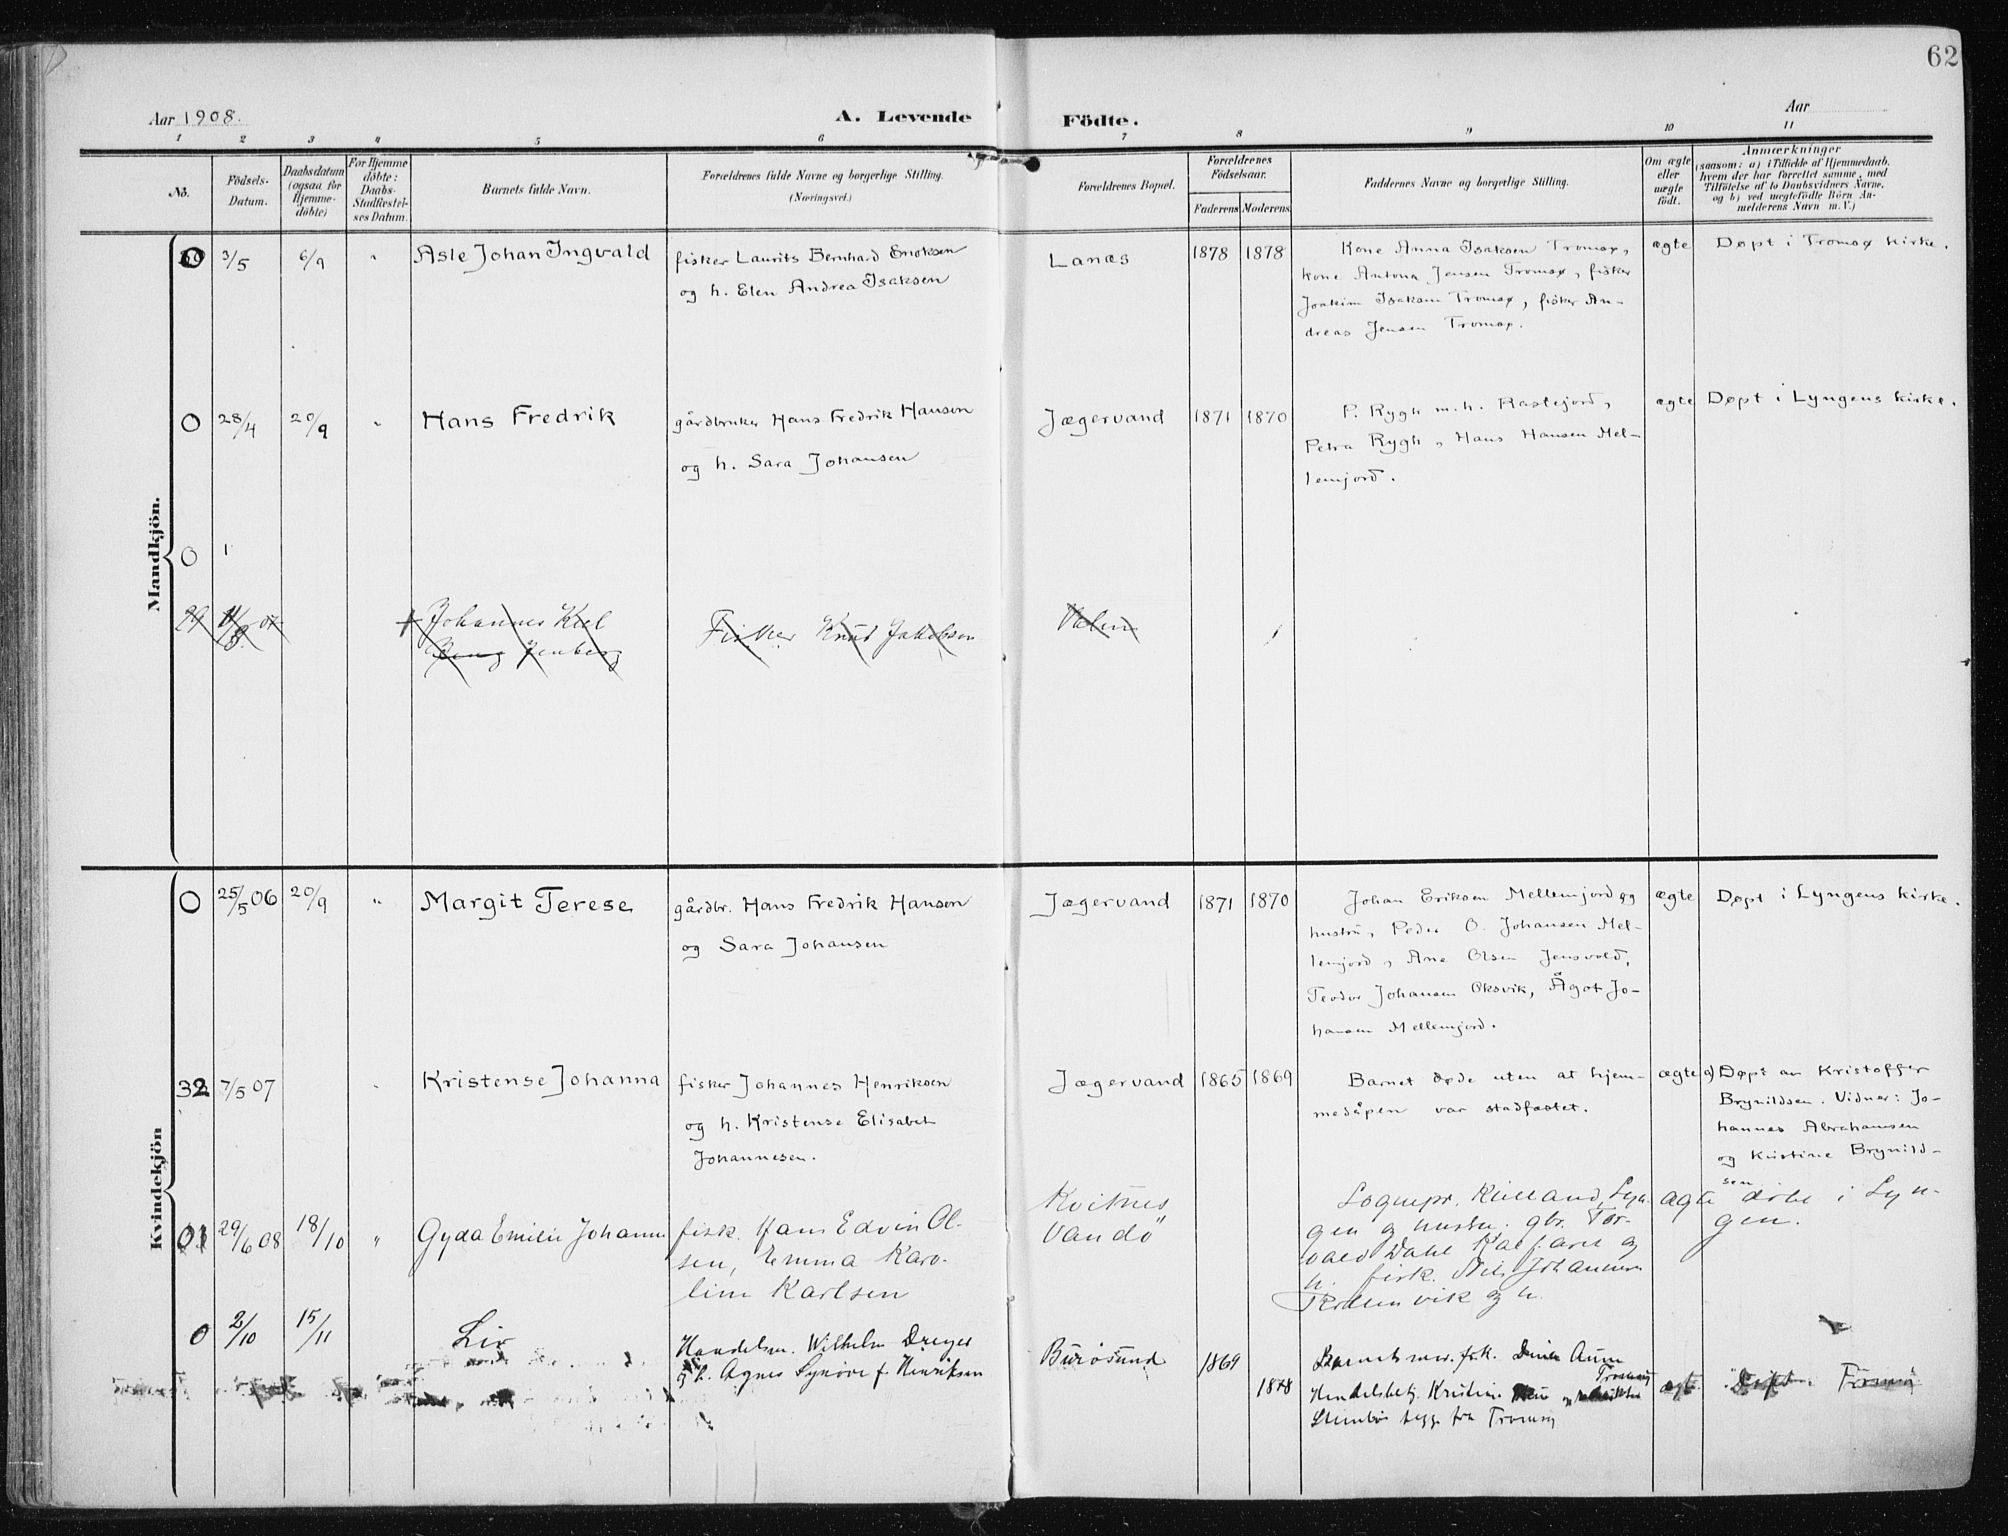 62
Aar 1908.
A. Levende Födte.
Aar
1 2 3 4 5 6 7 8 9 10 11
No.
Födsels-
Datum.
Daabsdatum
(ogsaa for
Hjemme-
döbte)
For Hjemme
döbte:
Daabs-
Stadfæstel-
ses Datum.
Barnets fulde Navn.
Forældrenes fulde Navne og borgerlige Stilling.
(Næringsvei.)
Forældrenes Bopæl.
Forældrenes
Födselsaar.
Faderens
Moderens
Faddernes Navne og borgerlige Stilling.
Om ægte
eller
uægte
födt.
Anmærkninger
(saasom: a) i Tilfælde af Hjemmedaab,
hvem der har forrettet samme, med
Tilföielse af to Daabsvidners Navne,
og b) ved uægtefödte Börn An-
melderens Navn m. V.)
Mandkjön.
0 3/5 6/9 " Asle Johan Ingvald
fisker Laurits Bernhard Enoksen
og h. Elen Andrea Isaksen
Lanæs 1878 1878
Kone Anna Isaksen Tromsø,
kone Antona Jensen Tromsø, fisker
Joakim Isaksen Tromsø, fisker An-
dreas Jensen Tromsø.
ægte Døpt i Tromsø kirke.
0 28/4 20/9 " Hans Fredrik
gårdbruker Hans Fredrik Hansen
og h. Sara Johansen
Jægervand 1871 1870
P. Rygh m. h. Rastefjord,
Petra Rygh, Hans Hansen Mel-
lemjord.
ægte Døpt i Lyngens kirke.
0 1
29 11/8 07 Johannes Kiel
Jenberg
Fisker Knud Jakobsen
Valen
Kvindekjön
0 25/5 06 20/9 " Margit Terese
gårdbr. Hans Fredrik Hansen
og Sara Johansen
Jægervand 1871 1870
Johan Eriksen Mellemjord og
hustru, Peder O. Johansen Mel-
lemjord, Ane Olsen Jensvold,
Teodor Johansen Oksvik, Ågot Jo-
hansen Mellemjord.
ægte Døpt i Lyngens kirke.
32 7/5 07 " Kristense Johanna
fisker Johannes Henriksen
og h. Kristense Elisabet
Johannesen.
Jægervand 1865 1869
Barnet døde uten at hjem-
medåpen var stadfæstet.
ægte a) Døpt av Kristoffer
Brynildsen. Vidner: Jo-
hannes Abrahamsen
og Kristine Brynild-
sen
01 29/6 08 18/10 " Gyda Emilie Johanne
fisk. Hans Edvin Ol-
sen, Emma Karo-
line Karlsen
Kvitnes
Vandö
Sognepr. Kielland, Lyn-
gen og hustru. gbr. Tor-
vald Dahl Kalfaret og
h. fisk. Nils Johannesen
vik og h.
ægte döbt i Lyn-
gen.
0 2/10 15/11 Liv
Handelsm. Wilhelm Dreyer
og h. Agnes Synöve f Henriksen
Burösund 1869 1878
Barnets mor. frk. Aune
Tromsø
Handelsbetj. Kristine og
Steinbö begge fra Tromsø
ægt. Døpt i Tromsø